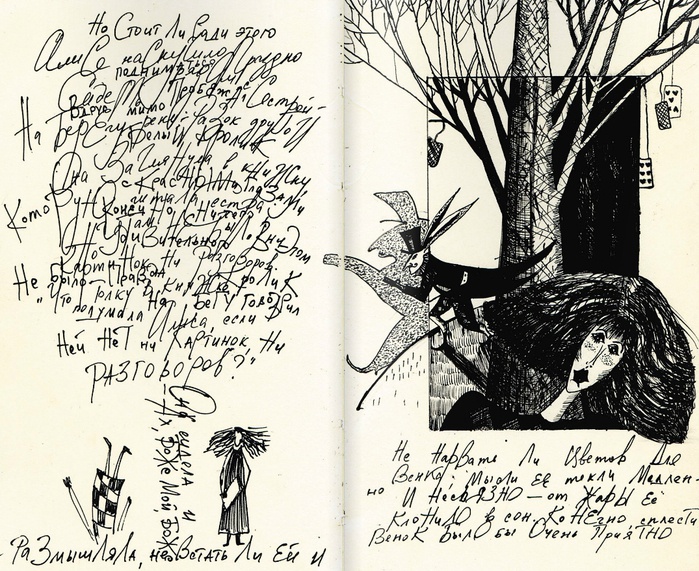 Но Стоит Ли Ради этого
Алисе наскучило Праздно
подниматься
Сидеть с Сестрой
Пробежал
Вдруг мимо
На Берегу реки; разок другой
Белый Кролик
Она Заглянула в Книжку
с Красными глазами
Которую Читала Сестра
Конечно, Ничего
Там Не Было Ни
Удивительного в этом
Картинок Ни разговоров.
Не было. Правда, Кролик
"Что Толку в Книжке
на Бегу Говорил
подумала Алиса, если в
Ней Нет ни Картинок, Ни
РАЗГОВОРОВ?"
Она сидела и
—Ах, Боже Мой, Бож
Размышляла, не Встать Ли Ей и
Не Нарвать Ли Цветов Для
Венка; Мысли Её текли Медлен-
но И Несвязно — от Жары Её
Клонило в сон. Конечно, сплести
Венок Было бы Очень Приятно